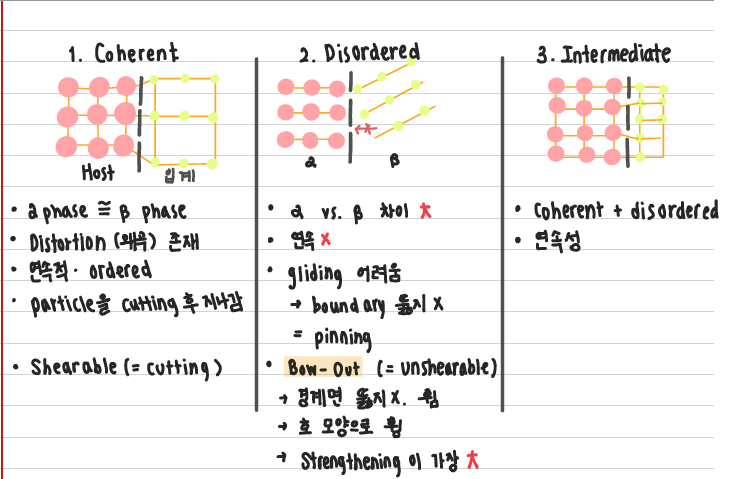 1. Coherent
Host
입계
• α phase ≅ β phase
• Distortion (왜곡) 존재
• 연속적 · ordered
• particle을 cutting 후 지나감
• Shearable (= cutting)
2. Disordered
α
β
• α vs. β 차이 大
• 연속 X
• gliding 어려움
→ boundary 뚫지 X
= pinning
• Bow-Out (= unshearable)
→ 경계면 뚫지 X. 휨
→ 호 모양으로 휨
→ Strengthening 이 가장 大
3. Intermediate
• Coherent + disordered
• 연속성